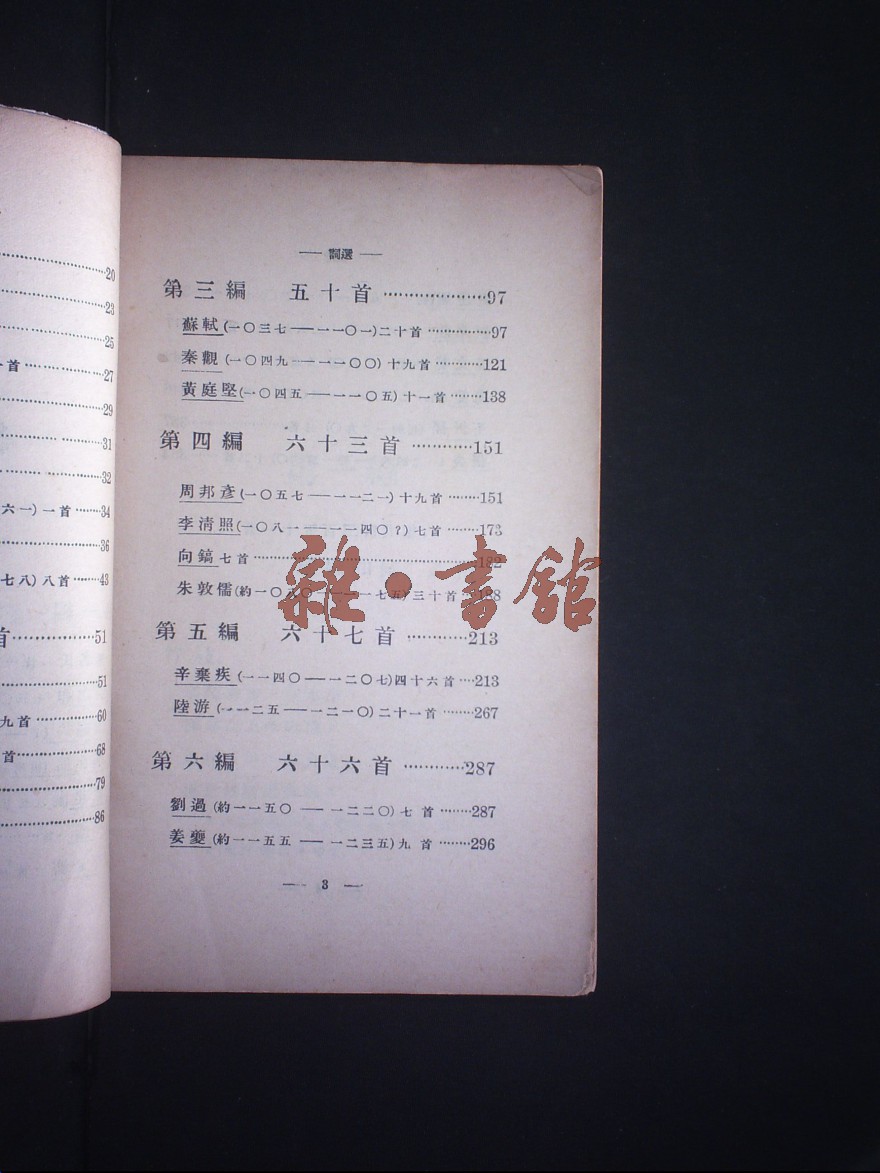 20
23
25
一首………27
29
31
32
六一) 一首………34
36
七八) 八首………43
首………51
51
九首………60
首………68
79
86
—— 詞選 ——
第三編 五十首………97
蘇軾 (一〇三七——一一〇一) 二十首………97
秦觀 (一〇四九——一一〇〇) 十九首………121
黃庭堅 (一〇四五——一一〇五) 十一首………138
第四編 六十三首………151
周邦彥 (一〇五七——一一二一) 十九首………151
李清照 (一〇八一——一一四〇?) 七首………173
向鎬 七首………182
朱敦儒 (約一〇八〇——一一七五) 三十首………188
第五編 六十七首………213
辛棄疾 (一一四〇——一二〇七) 四十六首………213
陸游 (一一二五——一二一〇) 二十一首………267
第六編 六十六首………287
劉過 (約一一五〇——一二二〇) 七首………287
姜夔 (約一一五五——一二三五) 九首………296
—— 3 ——
雜·書館